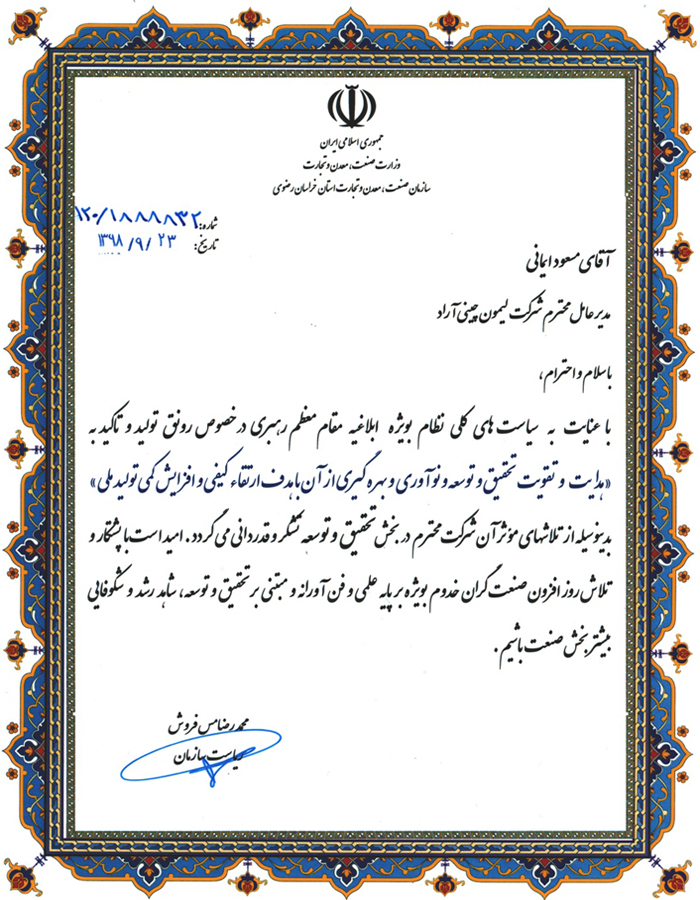 جمهوری اسلامی ایران
وزارت صنعت، معدن و تجارت
سازمان صنعت، معدن و تجارت استان خراسان رضوی
شماره: ۱۲۰/۱۸۸۸۸۳۲
تاریخ: ۱۳۹۸/۹/۲۳
آقای مسعود ایمانی
مدیر عامل محترم شرکت لیمون چینی آراد
با سلام و احترام،
با عنایت به سیاست های کلی نظام بویژه ابلاغیه مقام معظم رهبری در خصوص رونق تولید و تاکید به
«هدایت و تقویت تحقیق و توسعه و نوآوری و بهره گیری از آن با هدف ارتقاء کیفی و افزایش کمی تولید ملی»
بدینوسیله از تلاشهای مؤثر آن شرکت محترم در بخش تحقیق و توسعه تشکر و قدردانی می گردد. امید است با پشتکار و
تلاش روز افزون صنعت گران خدوم بویژه بر پایه علمی و فن آورانه و مبتنی بر تحقیق و توسعه، شاهد رشد و شکوفایی
بیشتر بخش صنعت باشیم.
محمدرضا مس فروش
ریاست سازمان